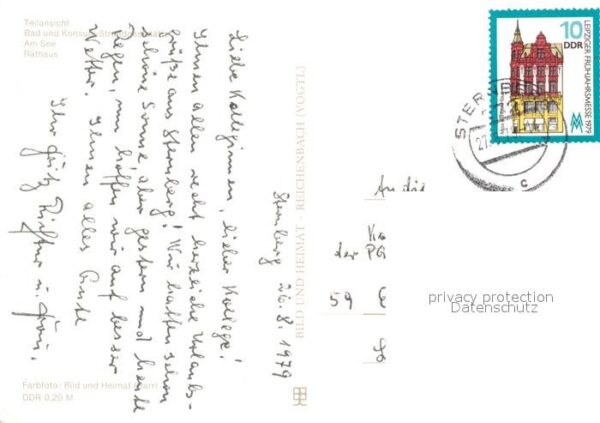 Teilansicht
Bad und Konsum-Strandgaststätte
Am See
Rathaus
Sternberg 26.8.1979
Liebe Kolleginnen, lieber Kollege!
Ihnen allen recht herzliche Urlaubs-
grüße aus Sternberg! Wir hatten schon
schöne Sonne aber gestern und heute
Regen, nun hoffen wir auf besser
Wetter. Ihnen alles Gute
Ihr Fritz Richter u. Frau.
Farbfoto: Bild und Heimat
DDR 0,20 M
BILD UND HEIMAT REICHENBACH (VOGTL)
10
DDR
LEIPZIGER FRÜHJAHRSMESSE 1979
MM
STERNBERG
27
c
An die
Ko
der PG
59 E
privacy protection
Datenschutz